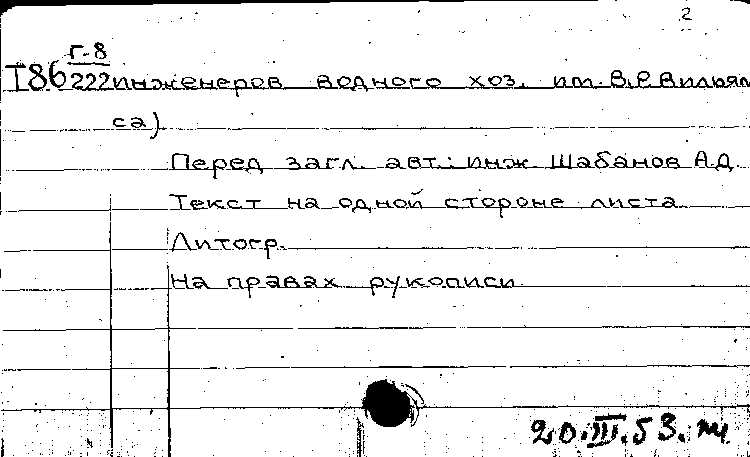 2
Г-8
Т86 222 инженеров водного хоз. им. В.Р.Вильям
са).
Перед загл. авт.: инж. Шабанов А.Д.
Текст на одной стороне листа
Литогр.
На правах рукописи
20.III.53.